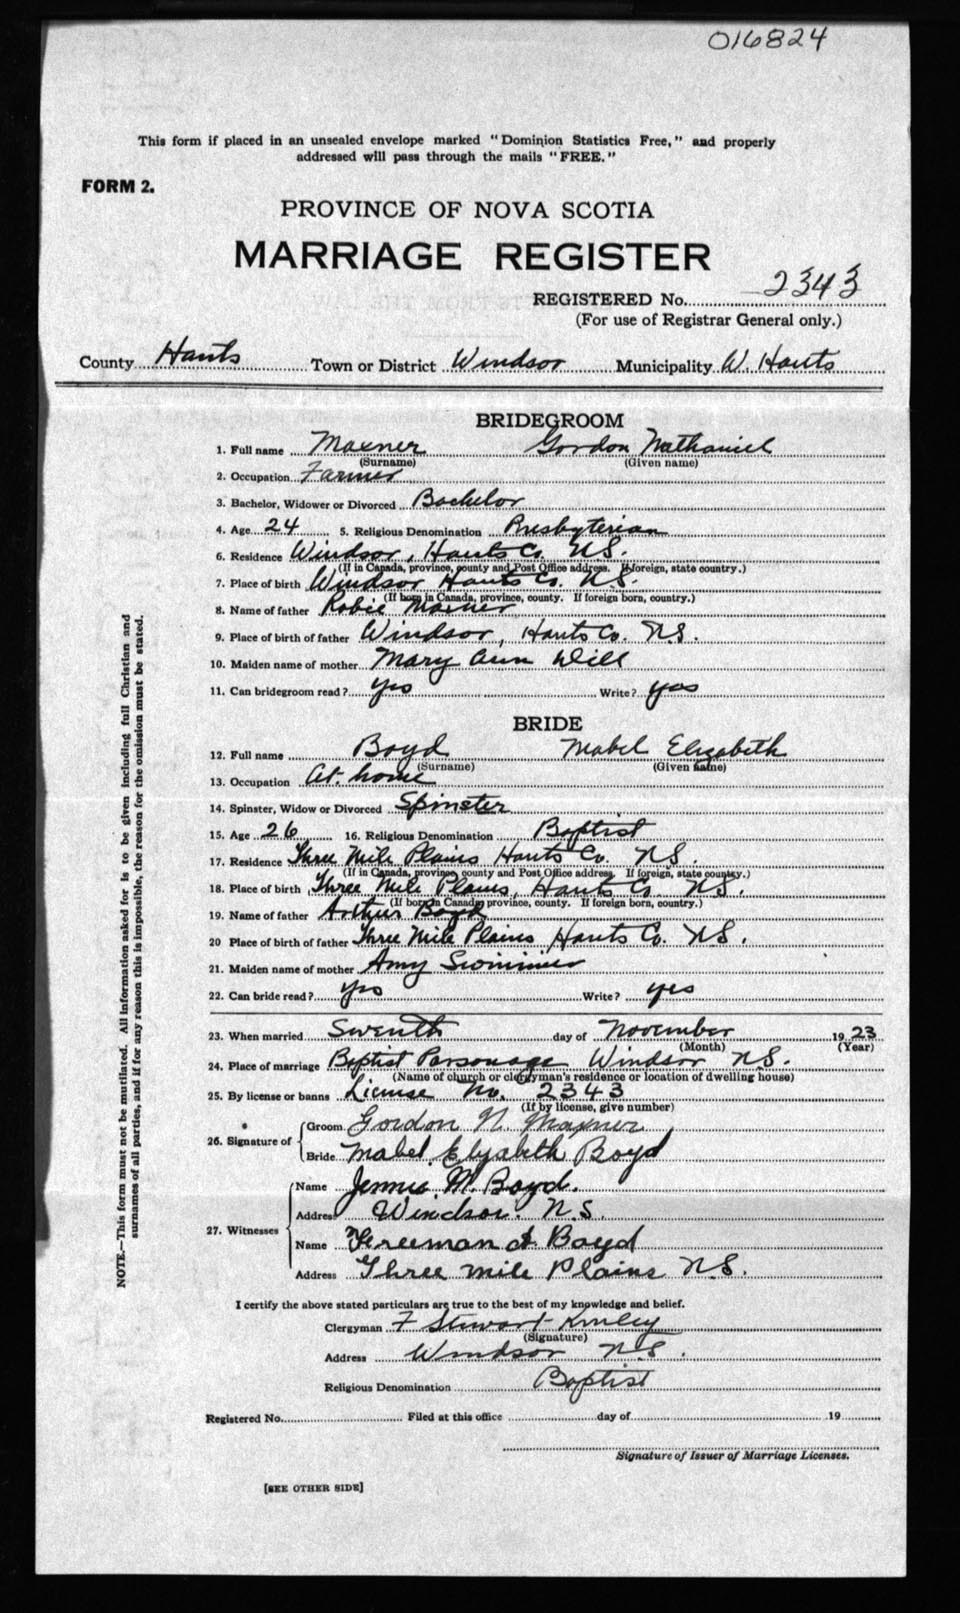 016824
This form if placed in an unsealed envelope marked "Dominion Statistics Free," and properly
addressed will pass through the mails "FREE."
FORM 2.
PROVINCE OF NOVA SCOTIA
MARRIAGE REGISTER
REGISTERED No. 2343
(For use of Registrar General only.)
County Hants Town or District Windsor Municipality W. Hants
BRIDEGROOM
1. Full name Maxner Gordon Nathaniel
(Surname) (Given name)
2. Occupation Farmer
3. Bachelor, Widower or Divorced Bachelor
4. Age 24 5. Religious Denomination Presbyterian
6. Residence Windsor, Hants Co. N.S.
(If in Canada, province, county and Post Office address. If foreign, state country.)
7. Place of birth Windsor Hants Co. N.S.
(If born in Canada, province, county. If foreign born, country.)
8. Name of father Robie Maxner
9. Place of birth of father Windsor, Hants Co. N.S.
10. Maiden name of mother Mary Ann Dill
11. Can bridegroom read? yes Write? yes
BRIDE
12. Full name Boyd Mabel Elizabeth
(Surname) (Given name)
13. Occupation At home
14. Spinster, Widow or Divorced Spinster
15. Age 26 16. Religious Denomination Baptist
17. Residence Three Mile Plains Hants Co. N.S.
(If in Canada, province county and Post Office address. If foreign, state country.)
18. Place of birth Three Mile Plains, Hants Co. N.S.
(If born in Canada, province, county. If foreign born, country.)
19. Name of father Arthur Boyd
20 Place of birth of father Three Mile Plains, Hants Co. N.S.
21. Maiden name of mother Amy
22. Can bride read? yes Write? yes
23. When married day of November 1923
(Month) (Year)
24. Place of marriage Baptist Parsonage Windsor N.S.
(Name of church or clergyman's residence or location of dwelling house)
25. By license or banns License No. 2343
(If by license, give number)
26. Signature of
Groom Gordon N. Maxner
Bride Mabel Elizabeth Boyd
27. Witnesses
Name Jennie M. Boyd.
Address Windsor. N.S.
Name Freeman A. Boyd
Address Three Mile Plains N.S.
I certify the above stated particulars are true to the best of my knowledge and belief.
Clergyman F Stewart Kinley
(Signature)
Address Windsor N.S.
Religious Denomination Baptist
Registered No. Filed at this office day of 19
Signature of Issuer of Marriage Licenses.
[SEE OTHER SIDE]
NOTE.—This form must not be mutilated. All information asked for is to be given including full Christian and
surnames of all parties, and if for any reason this is impossible, the reason for the omission must be stated.